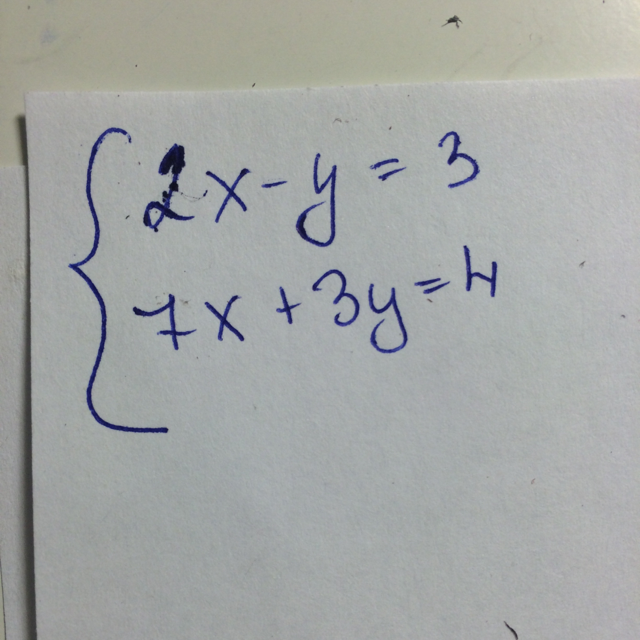 2x - y = 3
7x + 3y = 4